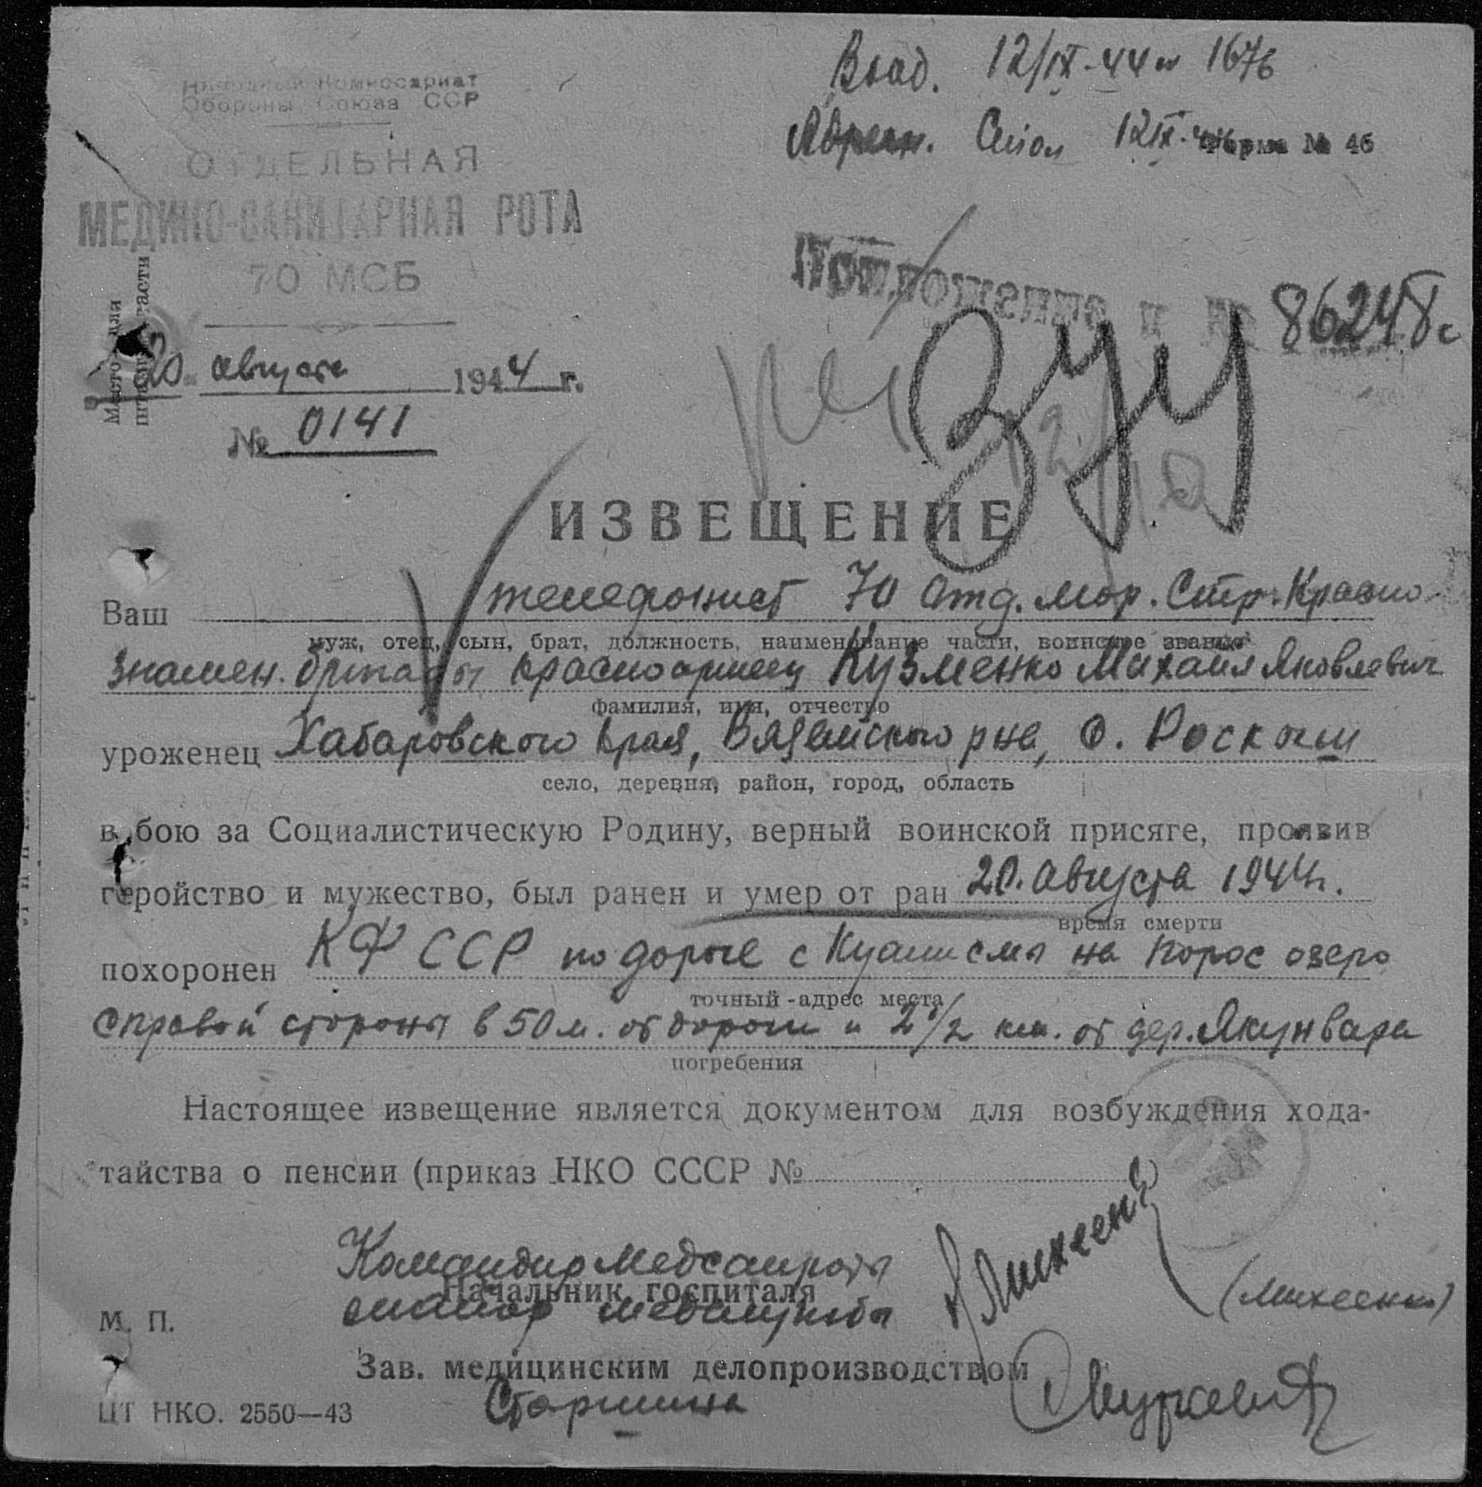 Народный Комиссариат
Обороны Союза ССР
ОТДЕЛЬНАЯ
МЕДИКО-САНИТАРНАЯ РОТА
70 МСБ
12/IX-44 1676
Адресн. Стол 12 IX.
Форма № 46
86248с
20 августа 1944 г.
№ 0141
ИЗВЕЩЕНИЕ
Ваш телефонист 70 отд. мор. Стр. Красно-
муж, отец, сын, брат, должность, наименование части, воинское звание
знамен. бригады красноармеец Кузменко Михаил Яковлевич
фамилия, имя, отчество
уроженец Хабаровского края, Вяземского р-на, с. Роскоши
село, деревня, район, город, область
в бою за Социалистическую Родину, верный воинской присяге, проявив
геройство и мужество, был ранен и умер от ран 20. августа 1944г.
время смерти
похоронен КФ ССР по дороге с Куанисмы на Порос озеро
точный адрес места
справой стороны в 50 м. от дороги и 2 1/2 км. от дер. Якунвара
погребения
Настоящее извещение является документом для возбуждения хода-
тайства о пенсии (приказ НКО СССР №
Командир Медсанроты
Начальник госпиталя
майор медслужбы
(Михеенко)
М. П.
Зав. медицинским делопроизводством
Старшина
ЦТ НКО. 2550—43